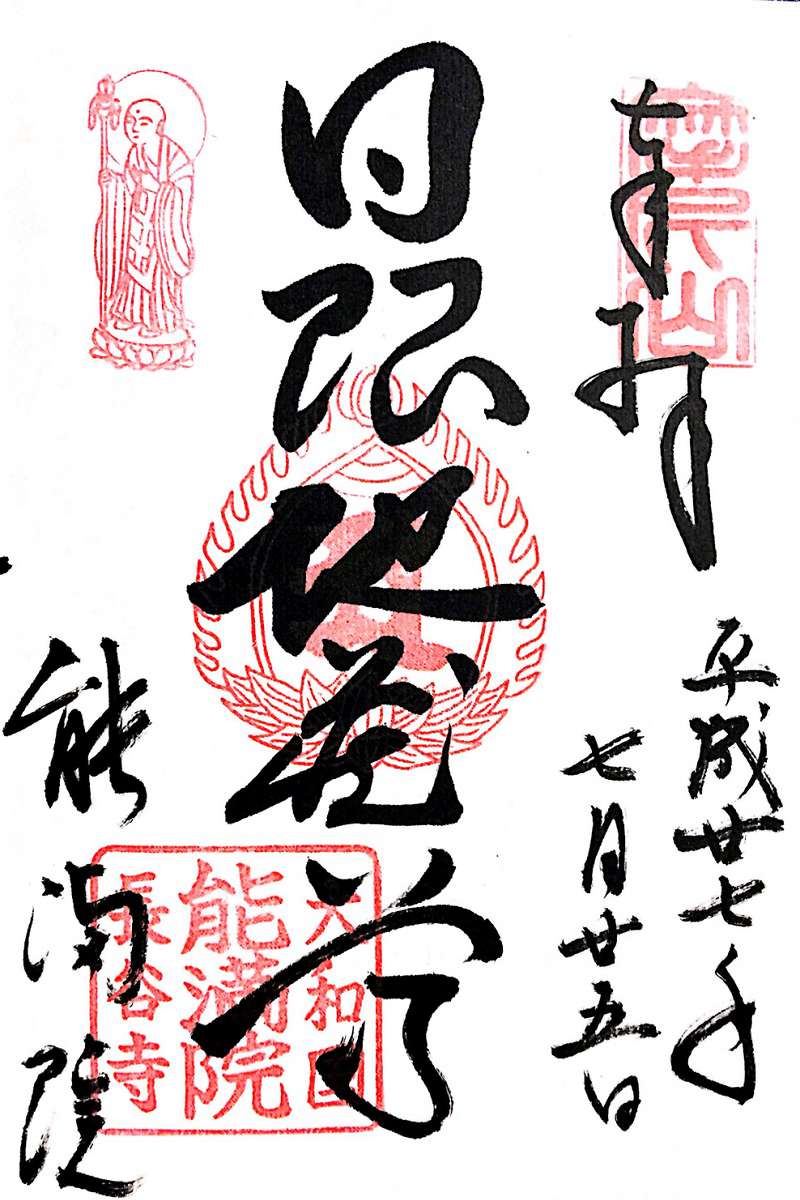 奉拝
平成廿七年
七月廿五日
日限地蔵尊
能満院
大和国
能満院
長谷寺